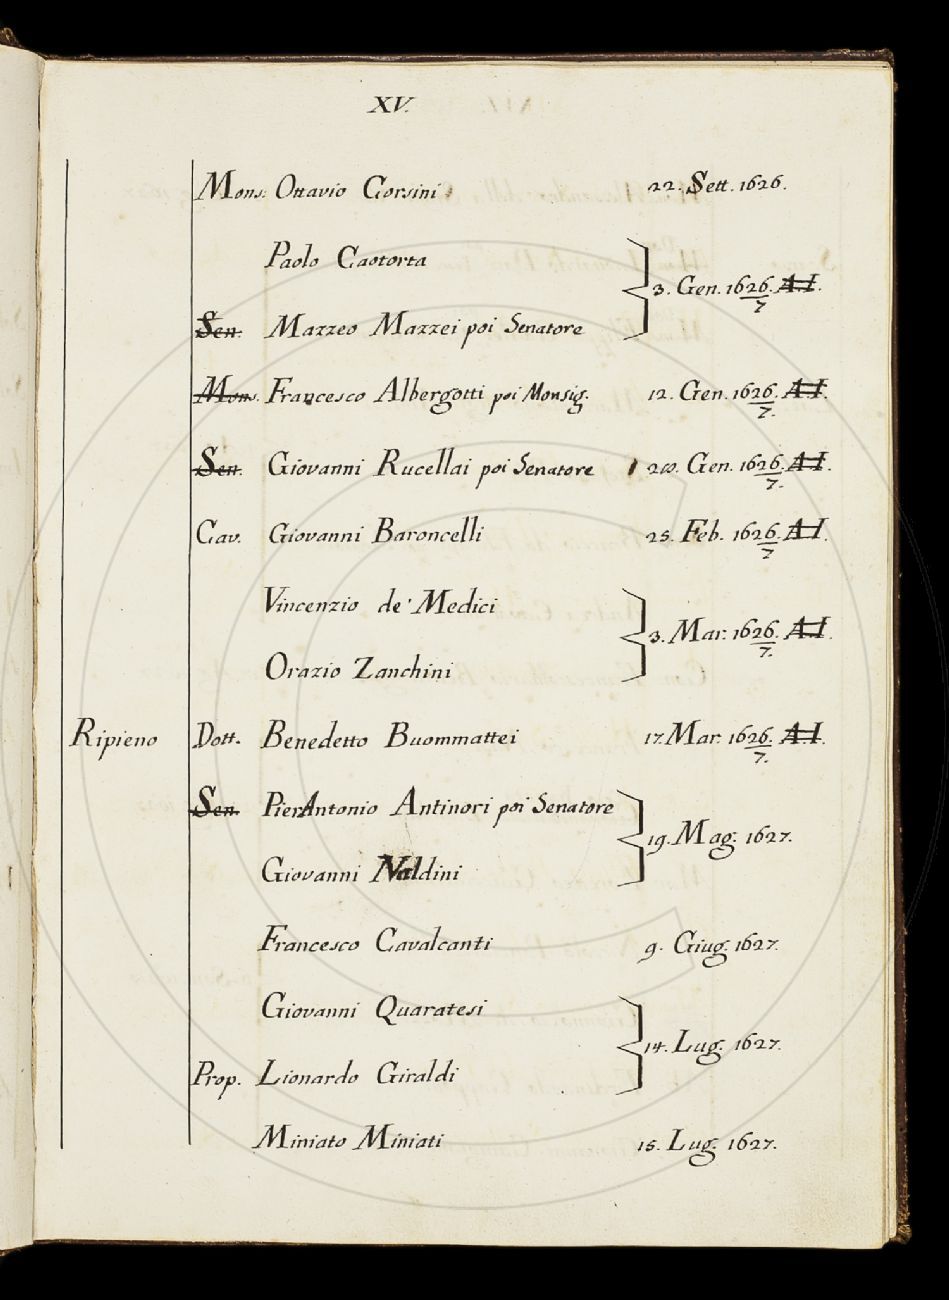 XV.
Mons: Ottavio Corsini 22. Sett. 1626.
Paolo Caotorta
3. Gen. 1626/7 A.I.
Sen. Mazzeo Mazzei poi Senatore
Mons. Francesco Albergotti poi Monsig. 12. Gen. 1626/7. A.I.
Sen. Giovanni Rucellai poi Senatore Gen. 1626/7. A.I.
Cav. Giovanni Baroncelli 25. Feb. 1626/7 A.I.
Vincenzio de' Medici
3. Mar. 1626/7. A.I.
Orazio Zanchini
Ripieno Dott. Benedetto Buommattei 17. Mar. 1626/7. A.I.
Sen. PierAntonio Antinori poi Senatore
19. Mag. 1627.
Giovanni Naldini
Francesco Cavalcanti 9. Giug. 1627.
Giovanni Quaratesi
14. Lug. 1627.
Prop. Lionardo Giraldi
Miniato Miniati 15. Lug. 1627.